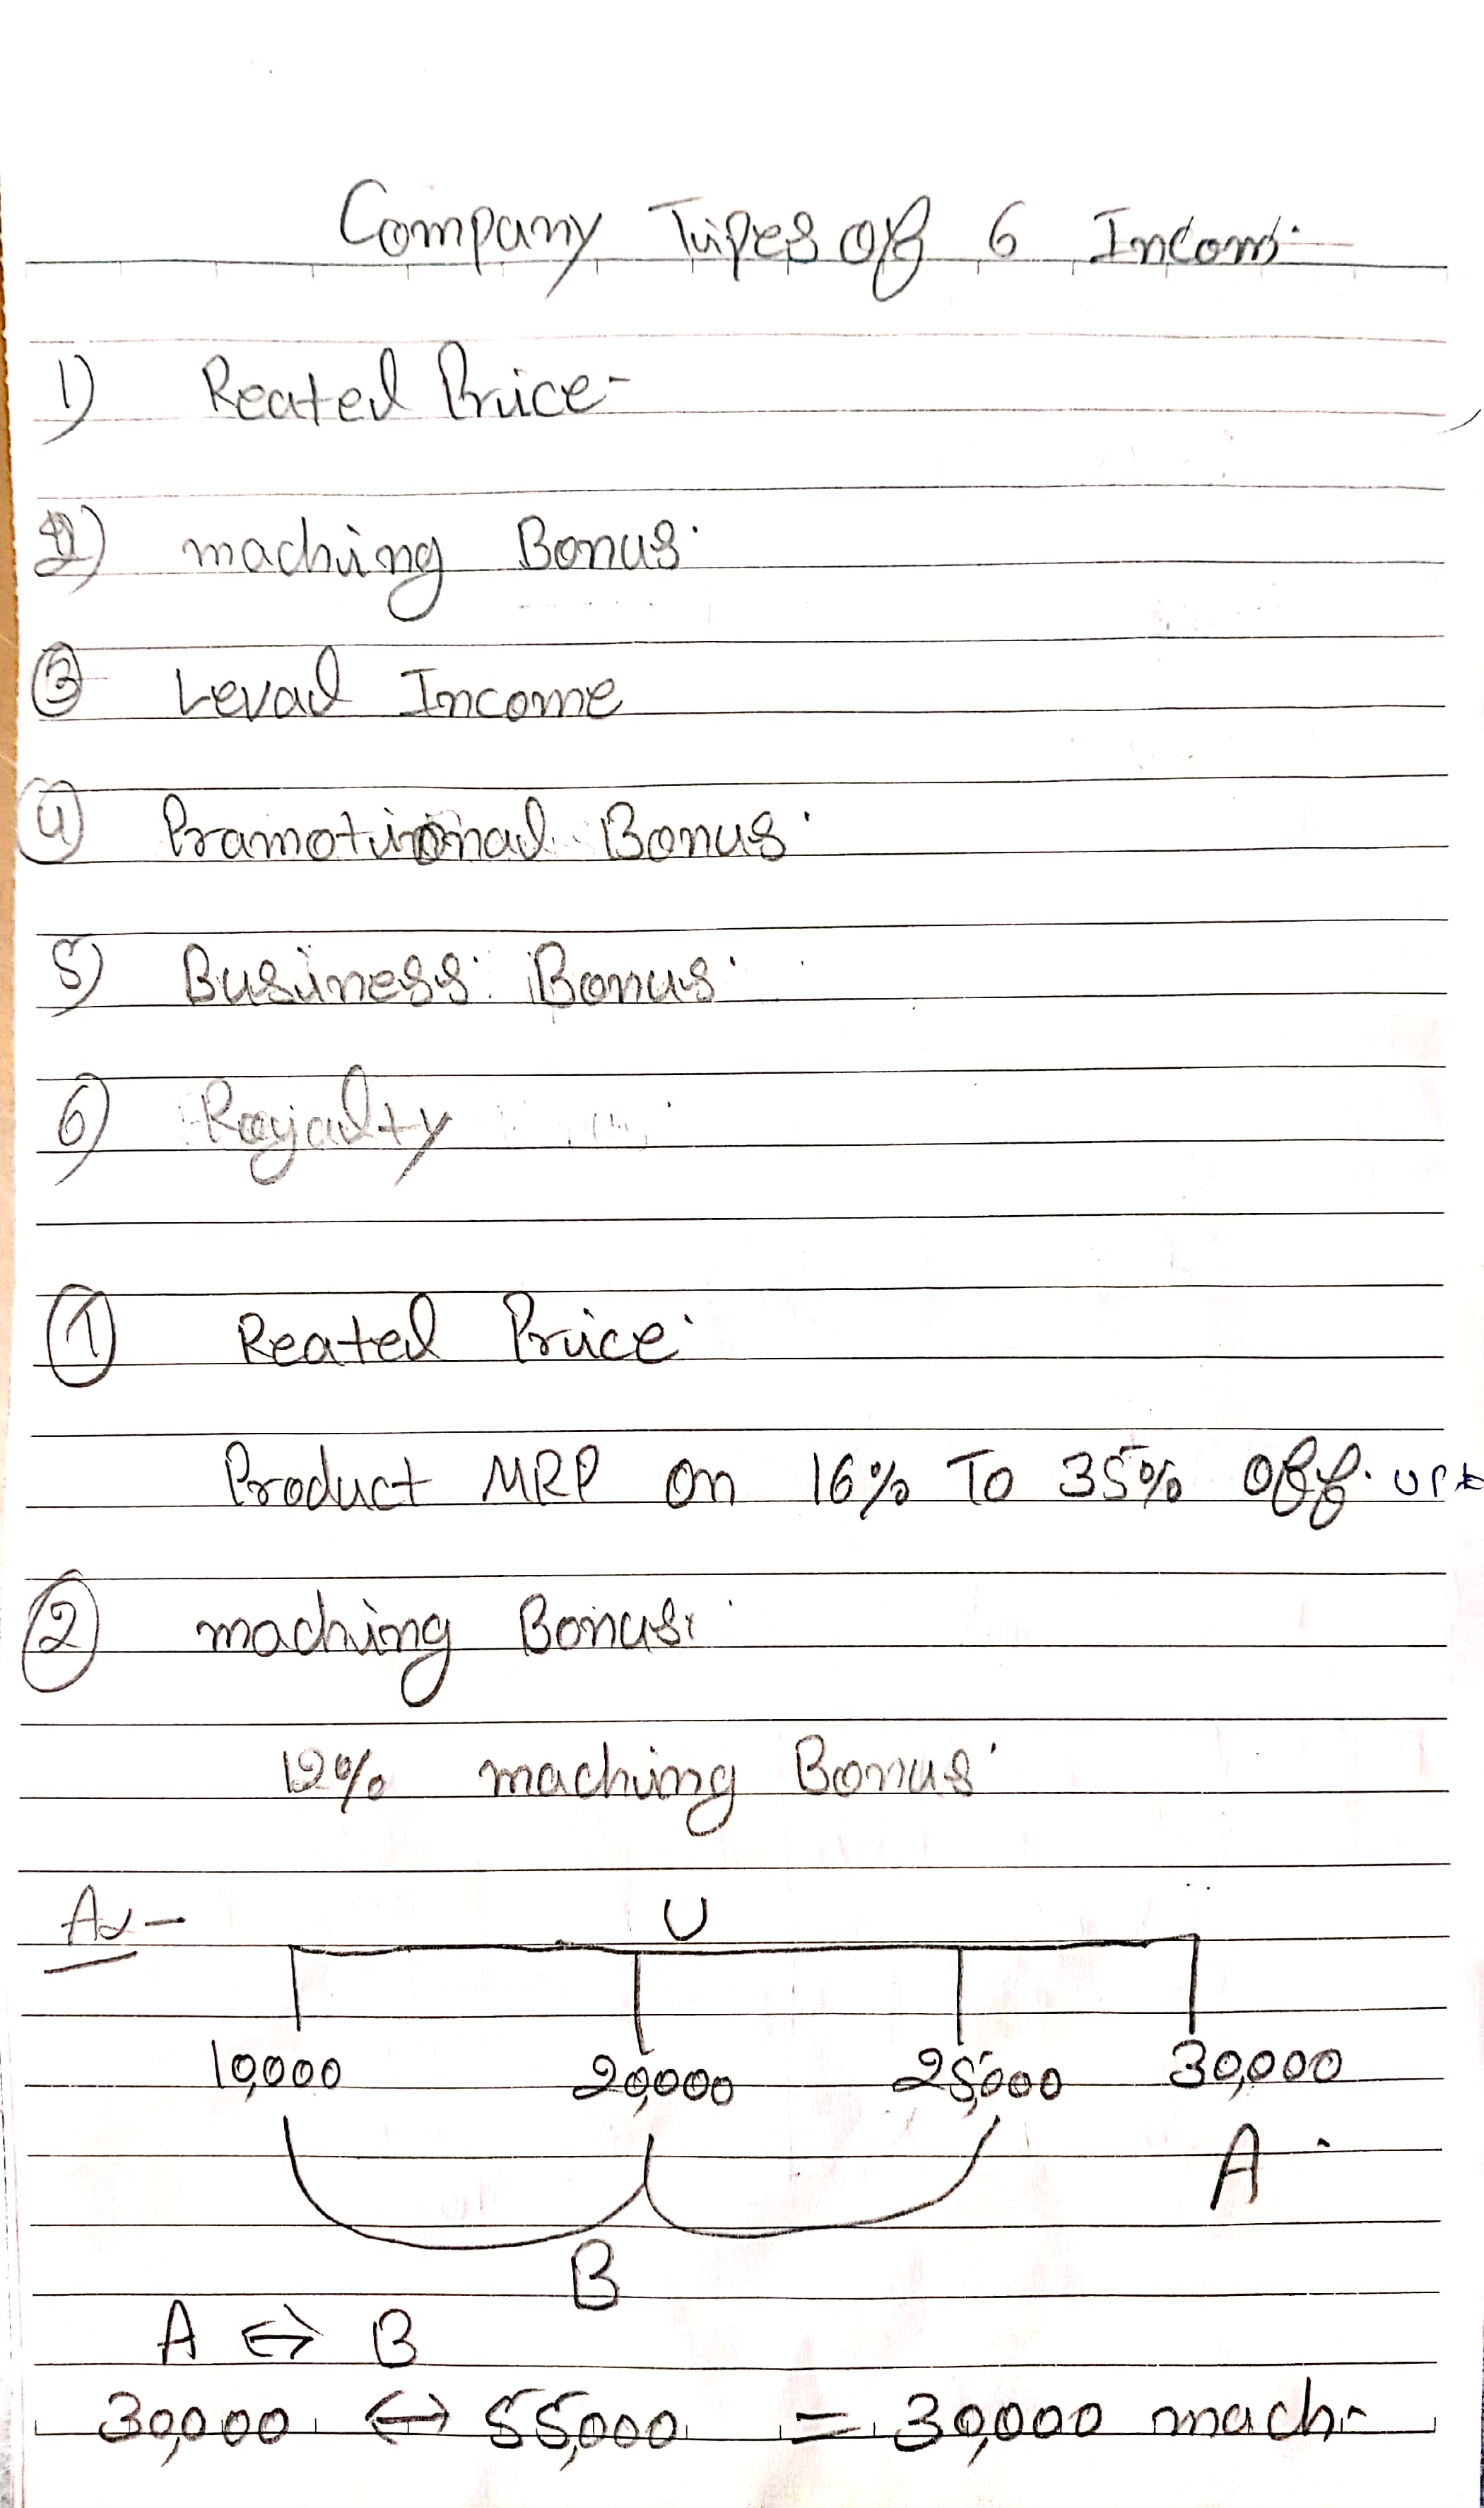 Company Tipes Of 6 Incom.
1) Reated Price-
2) maching Bonus.
3 Leval Income
4 Pramotional Bonus.
5) Business Bonus.
6) Royalty
1 Reated Price.
Product MRP on 16% To 35% Off. upt
2 maching Bonus.
12% maching Bonus
U
10,000 20,000 25,000 30,000
A
B
A ⇔ B
30,000 ↔ 55,000 = 30,000 mach